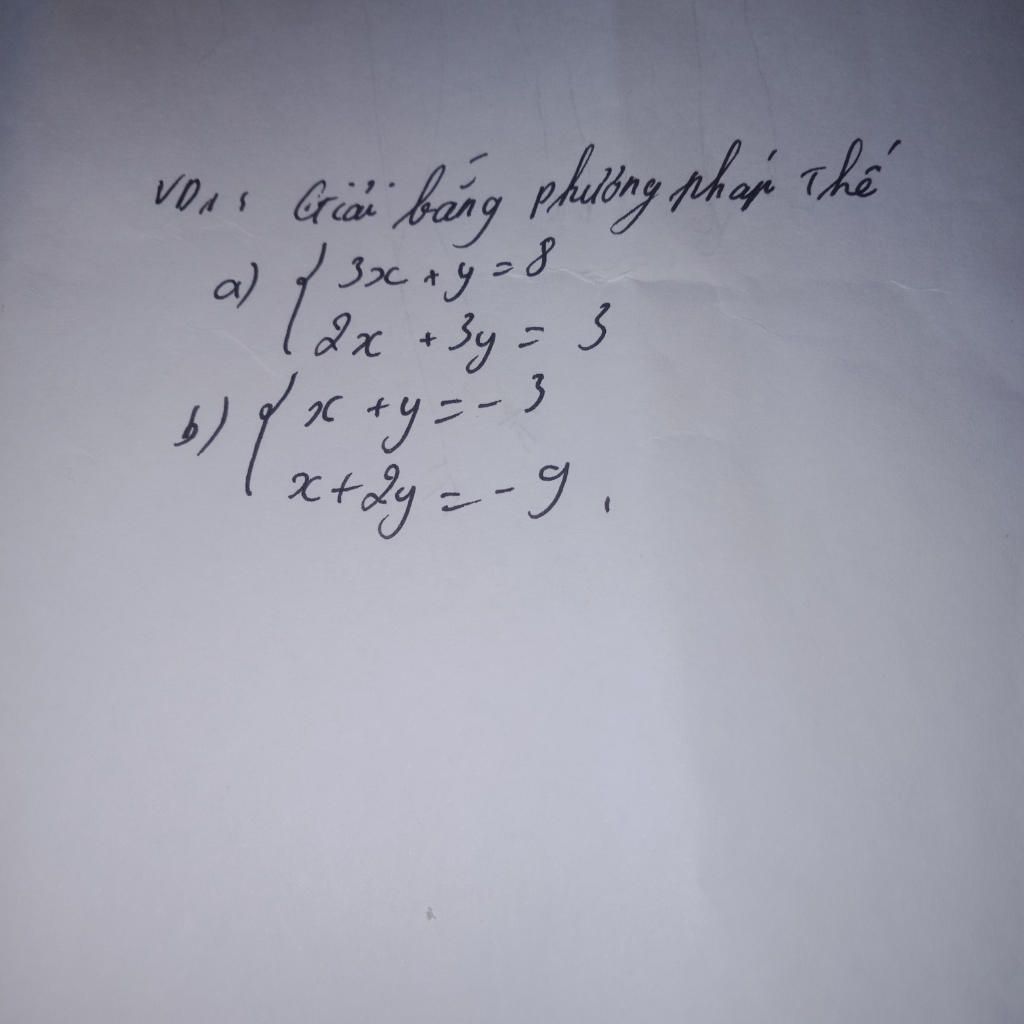 VD1: Giải bằng phương pháp Thế
a) { 3x + y = 8
2x + 3y = 3
b) { x + y = - 3
x + 2y = - 9.